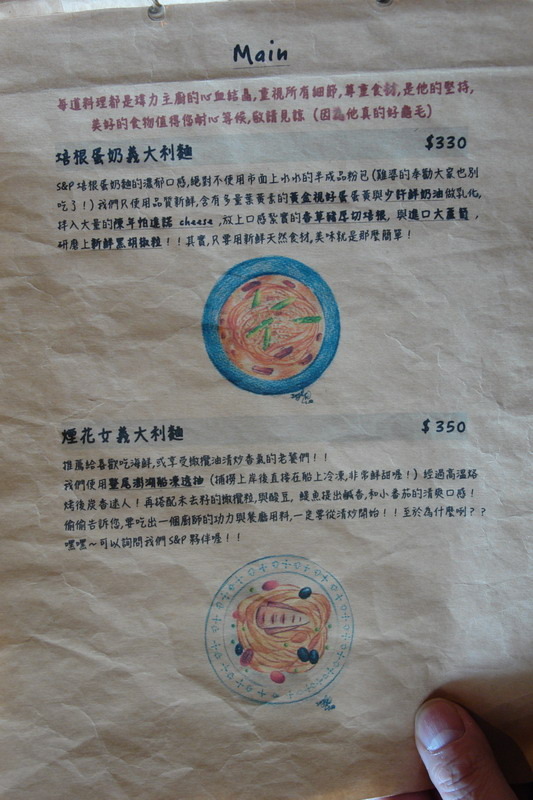 Main
每道料理都是瑋力主廚的心血結晶,重視所有細節,尊重食材,是他的堅持,
美好的食物值得您耐心等候,敬請見諒 (因為他真的好龜毛)
培根蛋奶義大利麵 $330
S&P培根蛋奶麵的濃郁口感,絕對不使用市面上水水的半成品粉包(雞婆的奉勸大家也別
吃了!)我們只使用品質新鮮,含有多量葉黃素的黃金視好蛋蛋黃與少許鮮奶油做乳化,
拌入大量的陳年帕達諾 cheese ,放上口感紮實的香草豬厚切培根, 與進口大蘑菇 ,
研磨上新鮮黑胡椒粒!!其實,只要用新鮮天然食材,美味就是那麼簡單!
煙花女義大利麵 $350
推薦給喜歡吃海鮮,或享受橄欖油清炒香氣的老饕們!!
我們使用整尾澎湖船凍透抽 (捕撈上岸後直接在船上冷凍,非常鮮甜喔!) 經過高溫烙
烤後炭香迷人!再搭配未去籽的橄欖粒,與酸豆, 鯷魚提出鹹香,和小番茄的清爽口感!
偷偷告訴您,要吃出一個廚師的功力與餐廳用料,一定要從清炒開始!!至於為什麼咧??
嘿嘿~可以詢問我們S&P夥伴喔!!